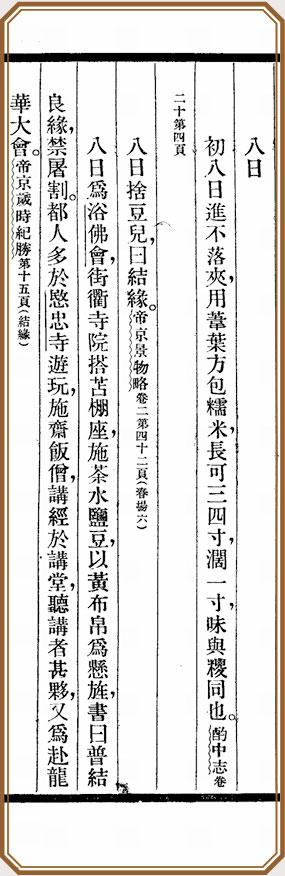 八日
初八日進不落夾，用葦葉方包糯米，長可三四寸，濶一寸，味與糭同也。酌中志卷
二十第四頁
八日捨豆兒，曰結緣。帝京景物略卷二第四十二頁（春場六）
八日爲浴佛會，街衢寺院搭苫棚座，施茶水鹽豆，以黃布帛爲懸旌，書曰普結
良緣，禁屠割。都人多於愍忠寺遊玩，施齋飯僧，講經於講堂，聽講者甚夥，又爲赴龍
華大會。帝京歲時紀勝第十五頁（結緣）